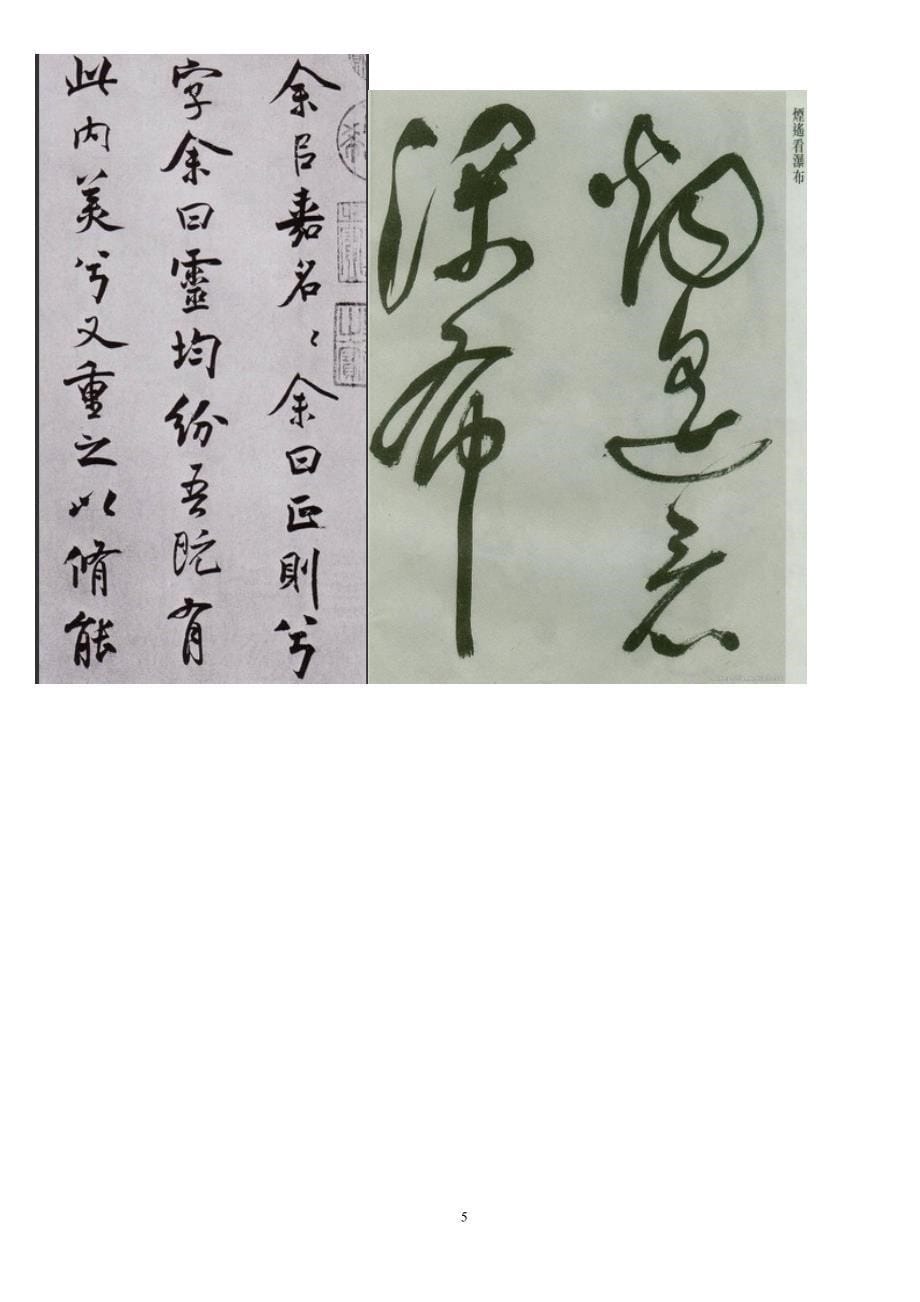 余㠯嘉名〻余曰正則兮
字余曰靈均紛吾既有
此內美兮又重之以脩能
煙遙看瀑布
烟遙看
瀑布
5